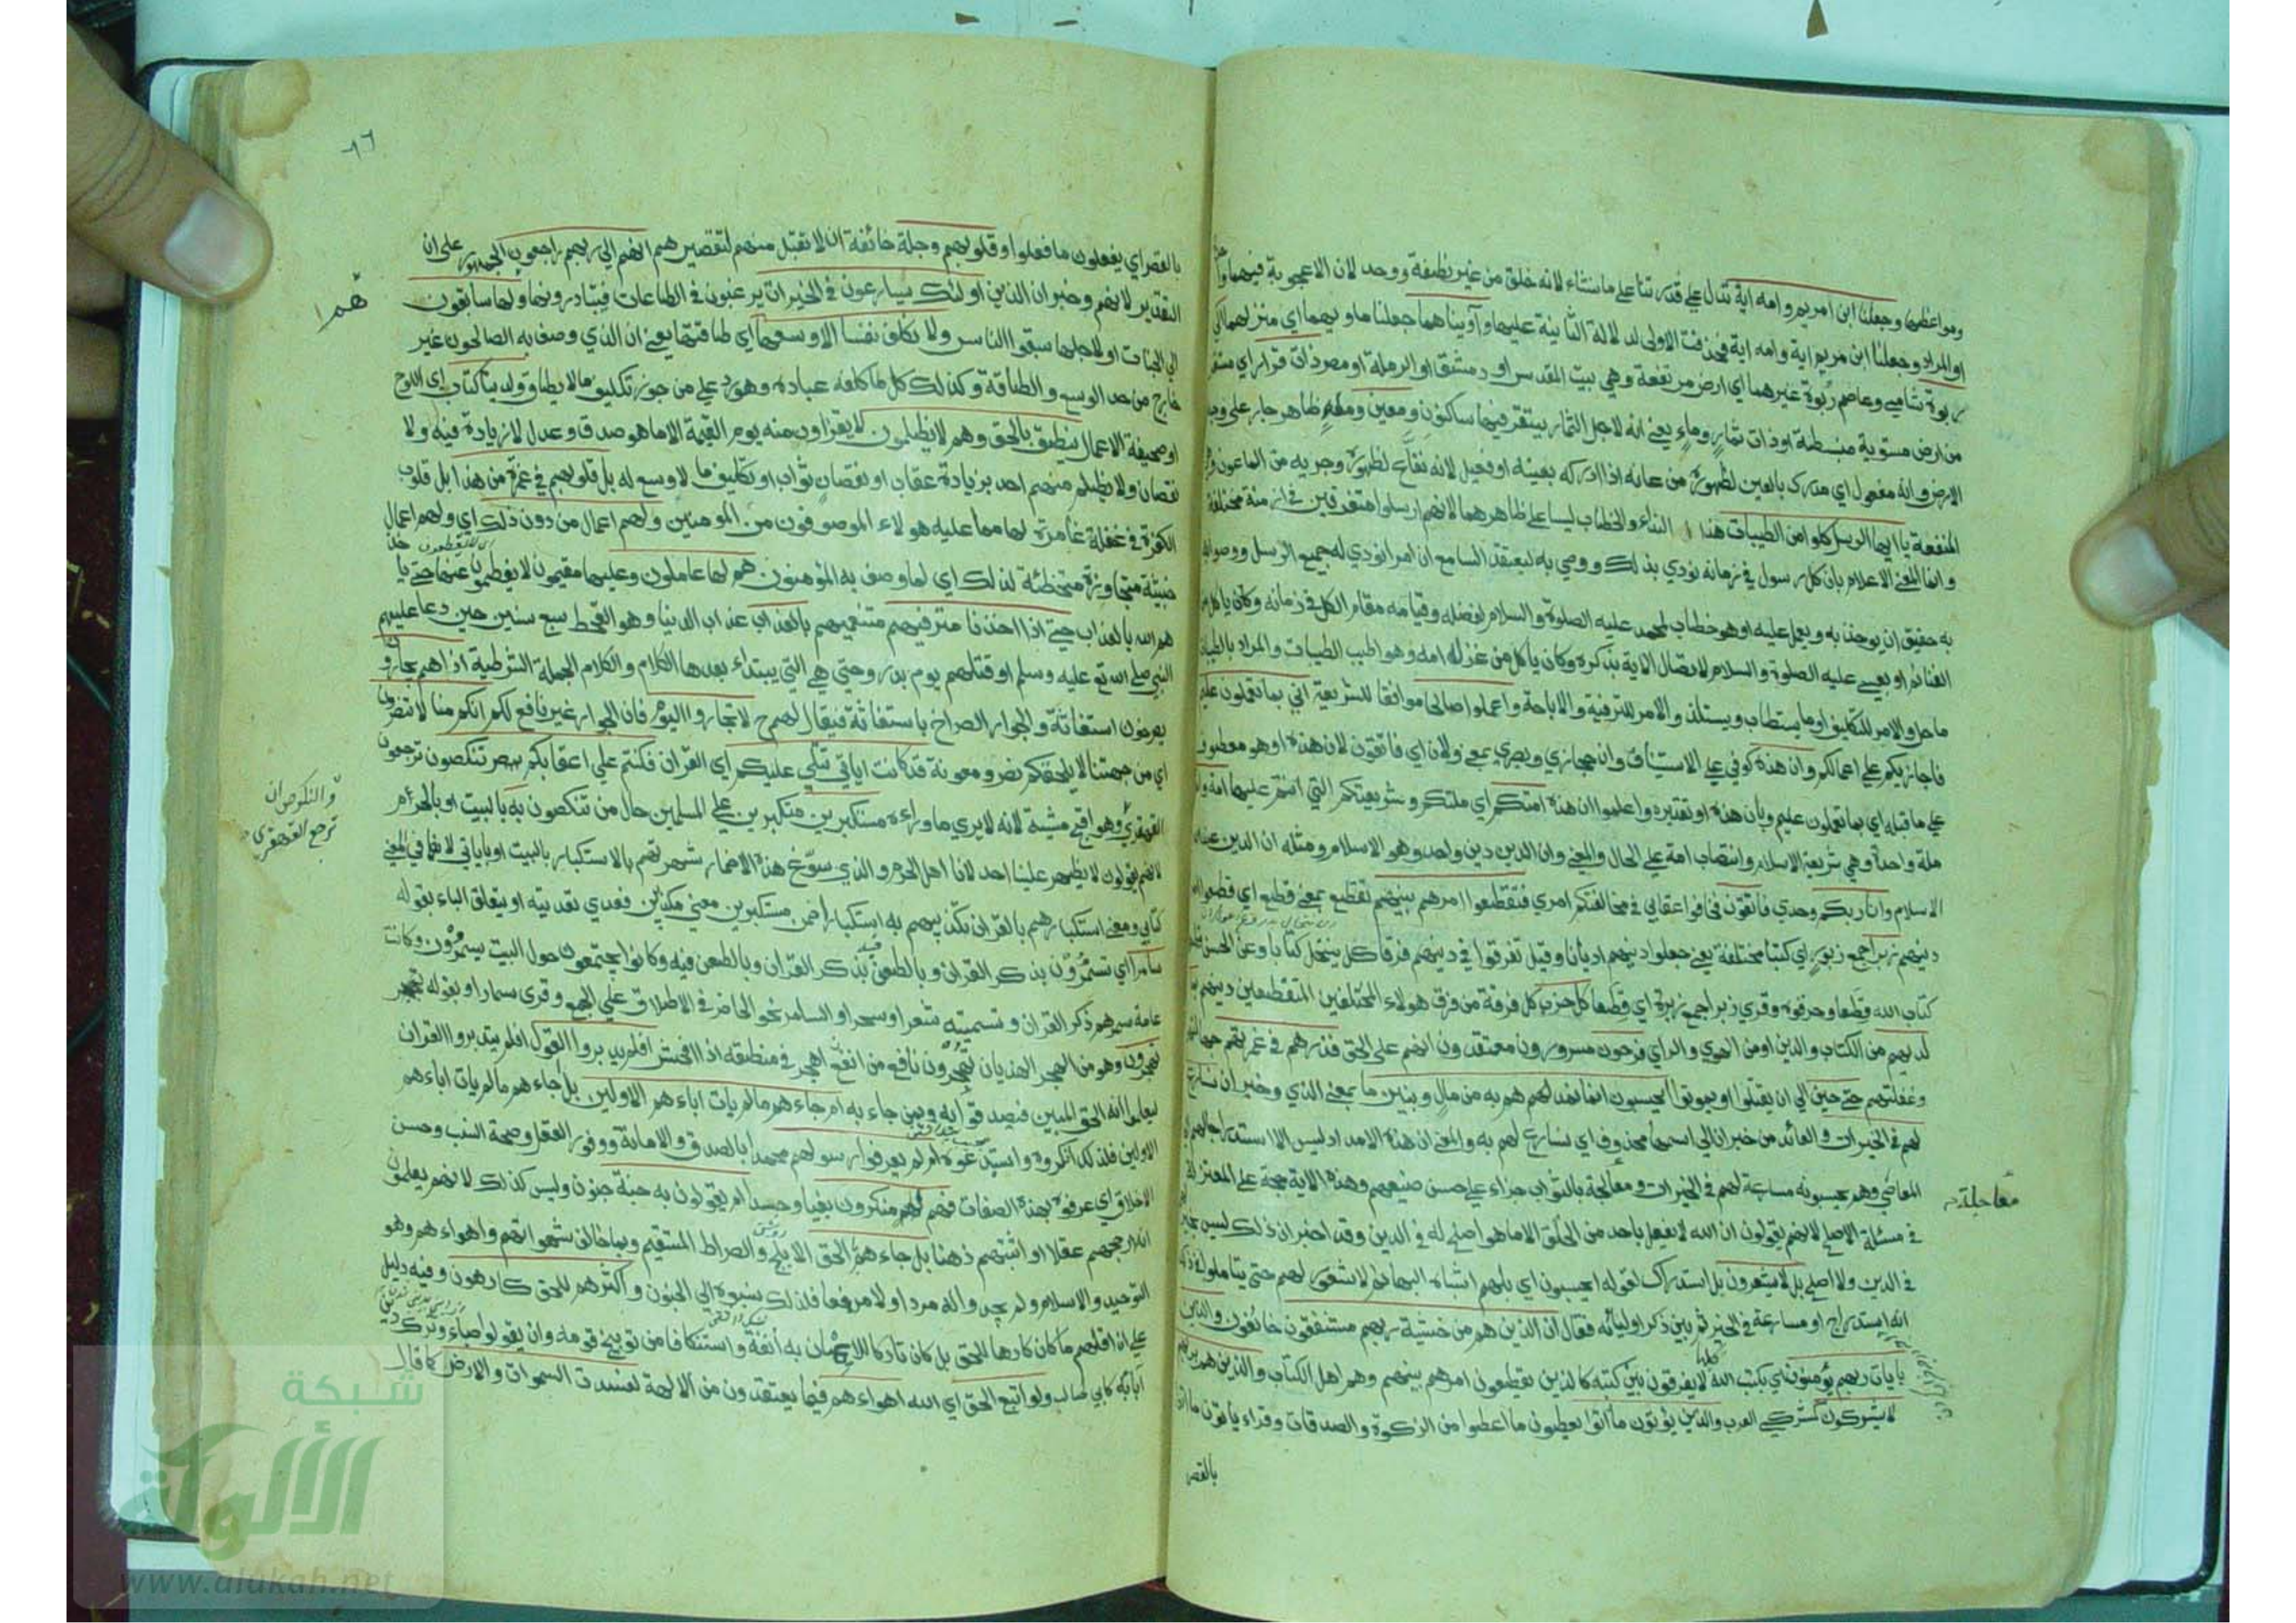 ومواعظها وجعلنا ابن امريم وامه اية تدل على قدرتنا على ما نشاء لانه خلق من غير نطفة ووحد لان الاعجوبة فيهما واحدة
او المراد وجعلنا ابن مريم اية وامه اية فحذفت الاولى لدلالة الثانية عليها وآويناهما جعلنا ماويهما اي منزلهما الى
ربوة شامي وعاصم ربوة غيرهما اي ارض مرتفعة وهي بيت المقدس او دمشق او الرملة او مصر ذات قرار اي مستقر
من ارض مستوية منبسطة او ذات ثمار وماء يعني انه لاجل الثمار يستقر فيها ساكنون ومعين وماء ظاهر جار على وجه
الارض وانه مفعول اي مدرك بالعين لظهوره من عانه اذا ادركه بعينه او فعيل لانه نفّاع لظهوره وجريه من الماعون وهو
المنفعة يا ايها الرسل كلوا من الطيبات هذا النداء والخطاب ليسا على ظاهرهما لانهم ارسلوا متفرقين في ازمنة مختلفة
وانما المعنى الاعلام بان كل رسول في زمانه نودي بذلك ووصي به ليعتقد السامع ان امرا نودي له جميع الرسل ووصوا به
به حقيق ان يوخذ به ويعمل عليه او هو خطاب لمحمد عليه الصلوة والسلام لفضله وقيامه مقام الكل في زمانه وكان ياكل من
الغنائم او بعيسى عليه الصلوة والسلام لاتصال الاية بذكره وكان ياكل من غزل امه وهو اطيب الطيبات والمراد بالطيبات
ما حل والامر للتكليف او ما يستطاب ويستلذ والامر للترفيه والاباحة واعملوا صالحا موافقا للشريعة اني بما تعملون عليم
فاجازيكم على اعمالكم وان هذه كوفي على الاستيناف وان حجازي وبصري بمعنى ولان اي فاتقون لان هذه او هو معطوف
على ما قبله اي بما تعملون عليم وبان هذه او تقديره واعلموا ان هذه امتكم اي ملتكم وشريعتكم التي انتم عليها امة واحدة
ملة واحدة وهي شريعة الاسلام وانتصاب امة على الحال والمعنى وان الدين دين واحد وهو الاسلام ومثله ان الدين عند الله
الاسلام وانا ربكم وحدي فاتقون فخافوا عقابي في مخالفتكم امري فتقطعوا امرهم بينهم تقطع بمعنى قطع اي قطعوا امر
دينهم زبرا جمع زبور اي كتبا مختلفة يعني جعلوا دينهم اديانا وقيل تفرقوا في دينهم فرقا كل ينتحل كتابا وعن الحسن قطعوا
كتاب الله قطعا وحرفوه وقري زبرا جمع زبرة اي قطعا كل حزب كل فرقة من فرق هولاء المختلفين المتقطعين دينهم بما
لديهم من الكتاب والدين او من الهوي والراي فرحون مسرورون معتقدون انهم على الحق فذرهم في غمرتهم جهالتهم
وغفلتهم حتى حين الي ان يقتلوا او يموتوا ايحسبون انما نمدهم به من مال وبنين ما بمعنى الذي وخبر ان نسارع
لهم في الخيرات والعائد من خبر ان الي اسمها محذوف اي نسارع لهم به والمعنى ان هذه الامداد ليس الا استدراجا لهم الى
المعاصي وهم يحسبونه مسارعة لهم في الخيرات ومعالجة بالثواب جزاء على حسن صنيعهم وهذه الاية حجة على المعتزلة
معاجلة
في مسئلة الاصلح لانهم يقولون ان الله لا يفعل باحد من الخلق الا ما هو اصلح له في الدين وقد اخبر ان ذلك ليس بخير
في الدين ولا اصلح بل لا يشعرون بل استدراك لقوله ايحسبون اي بل هم اشباه البهائم لا شعور لهم حتى يتاملوا في ذلك
انه استدراج او مسارعة في الخير ثم بين ذكر اوليائه فقال ان الذين هم من خشية ربهم مشفقون خائفون والذين
بايات ربهم يؤمنون اي بكتب الله كلها لا يفرقون بين كتبه كالذين يقطعون امرهم بينهم وهم اهل الكتاب والذين هم بربهم
لا يشركون كمشركي العرب والذين يؤتون ما آتوا يعطون ما اعطوا من الزكوة والصدقات وقراء ياتون ما اتوا
بالقصر
٨٦
بالقصر اي يفعلون ما فعلوا وقلوبهم وجلة خائفة ان لا تقبل منهم لتقصيرهم انهم الي ربهم راجعون الجمهور على ان
التقدير لانهم وخبر ان الذين اولئك يسارعون في الخيرات يرغبون في الطاعات فيبادرونها وهم لها سابقون
هم
الي الجنات او لاجلها سبقوا الناس ولا نكلف نفسا الا وسعها اي طاقتها يعني ان الذي وصف به الصالحون غير
خارج من حد الوسع والطاقة وكذلك كل ما كلفه عباده وهو رد على من جوز تكليف ما لا يطاق ولدينا كتاب اي اللوح
او صحيفة الاعمال ينطق بالحق وهم لا يظلمون لا يقراون منه يوم القيمة الا ما هو صدق وعدل لا زيادة فيه ولا
نقصان ولا يظلم منهم احد بزيادة عقاب او نقصان ثواب او تكليف ما لا وسع له بل قلوبهم في غمرة من هذا بل قلوب
الكفرة في غفلة غامرة لها مما عليه هولاء الموصوفون من المومنين ولهم اعمال من دون ذلك اي ولهم اعمال
خبيثة متجاوزة متخطئة لذلك اي لما وصف به المؤمنون هم لها عاملون وعليها مقيمون لا يفطمون عنها حتى ياخذ
هم الله بالعذاب حتى اذا اخذنا مترفيهم متنعميهم بالعذاب عذاب الدنيا وهو القحط سبع سنين حين دعا عليهم
النبي صلى الله تع عليه وسلم او قتلهم يوم بدر وحتى هي التي يبتداء بعدها الكلام والكلام الجملة الشرطية اذا هم يجارون
يصرخون استغاثة والجوار الصراخ باستغاثة فيقال لهم لا تجاروا اليوم فان الجوار غير نافع لكم انكم منا لا تنصرون
اي من جهتنا لا يلحقكم نصر ومعونة قد كانت اياتي تتلى عليكم اي القران فكنتم على اعقابكم تنكصون ترجعون
القهقري وهو اقبح مشية لانه لا يري ما وراءه مستكبرين متكبرين على المسلمين حال من تنكصون به بالبيت او بالحرم
والنكوص ان
ترجع القهقري
لانهم يقولون لا يظهر علينا احد لانا اهل الحرم والذي سوّغ هذا الاضمار شهرتهم بالاستكبار بالبيت او باياتي لانها في معنى
كتابي ومعنى استكبارهم بالقران تكذيبهم به استكبارا ضمن مستكبرين معنى مكذبين فعدي تعديته او يتعلق الباء بقوله
سامرا اي تسمرون بذكر القران وبالطعن فيه وكانوا يجتمعون حول البيت يسمرون وكانت
عامة سمرهم ذكر القران وتسميته شعرا وسحرا والسامر نحو الحاضر في الاطلاق على الجمع وقرى سمارا او بقوله
تهجرون وهو من الهجر الهذيان تهجرون نافع من اهجر في منطقه اذا افحش افلم يدبروا القول افلم يتدبروا القران
ليعلموا انه الحق المبين فيصدقوا به وبمن جاء به ام جاءهم ما لم يات اباءهم الاولين بل أجاءهم ما لم يات اباءهم
الاولين فلذلك انكروه واستبدعوه ام لم يعرفوا رسولهم محمدا بالصدق والامانة ووفور العقل وصحة النسب وحسن
الاخلاق اي عرفوه بهذه الصفات فهم له منكرون بغيا وحسدا ام يقولون به جنة جنون وليس كذلك لانهم يعلمون
انه ارجحهم عقلا واثبتهم ذهنا بل جاءهم بالحق الابلج والصراط المستقيم وبما خالف شهواتهم واهواءهم وهو
التوحيد والاسلام ولم يجدوا له مردا ولا مدفعا فلذلك نسبوه الى الجنون واكثرهم للحق كارهون وفيه دليل
على ان اقلهم ما كان كارها للحق بل كان تاركا للايمان به أنفة واستنكافا من توبيخ قومه وان يقولوا صباء وترك دين
آبائه كابي طالب ولو اتبع الحق اي الله اهواءهم فيما يعتقدون من الالهة لفسدت السموات والارض كما قال
شبكة
الألوكة
www.alukah.net